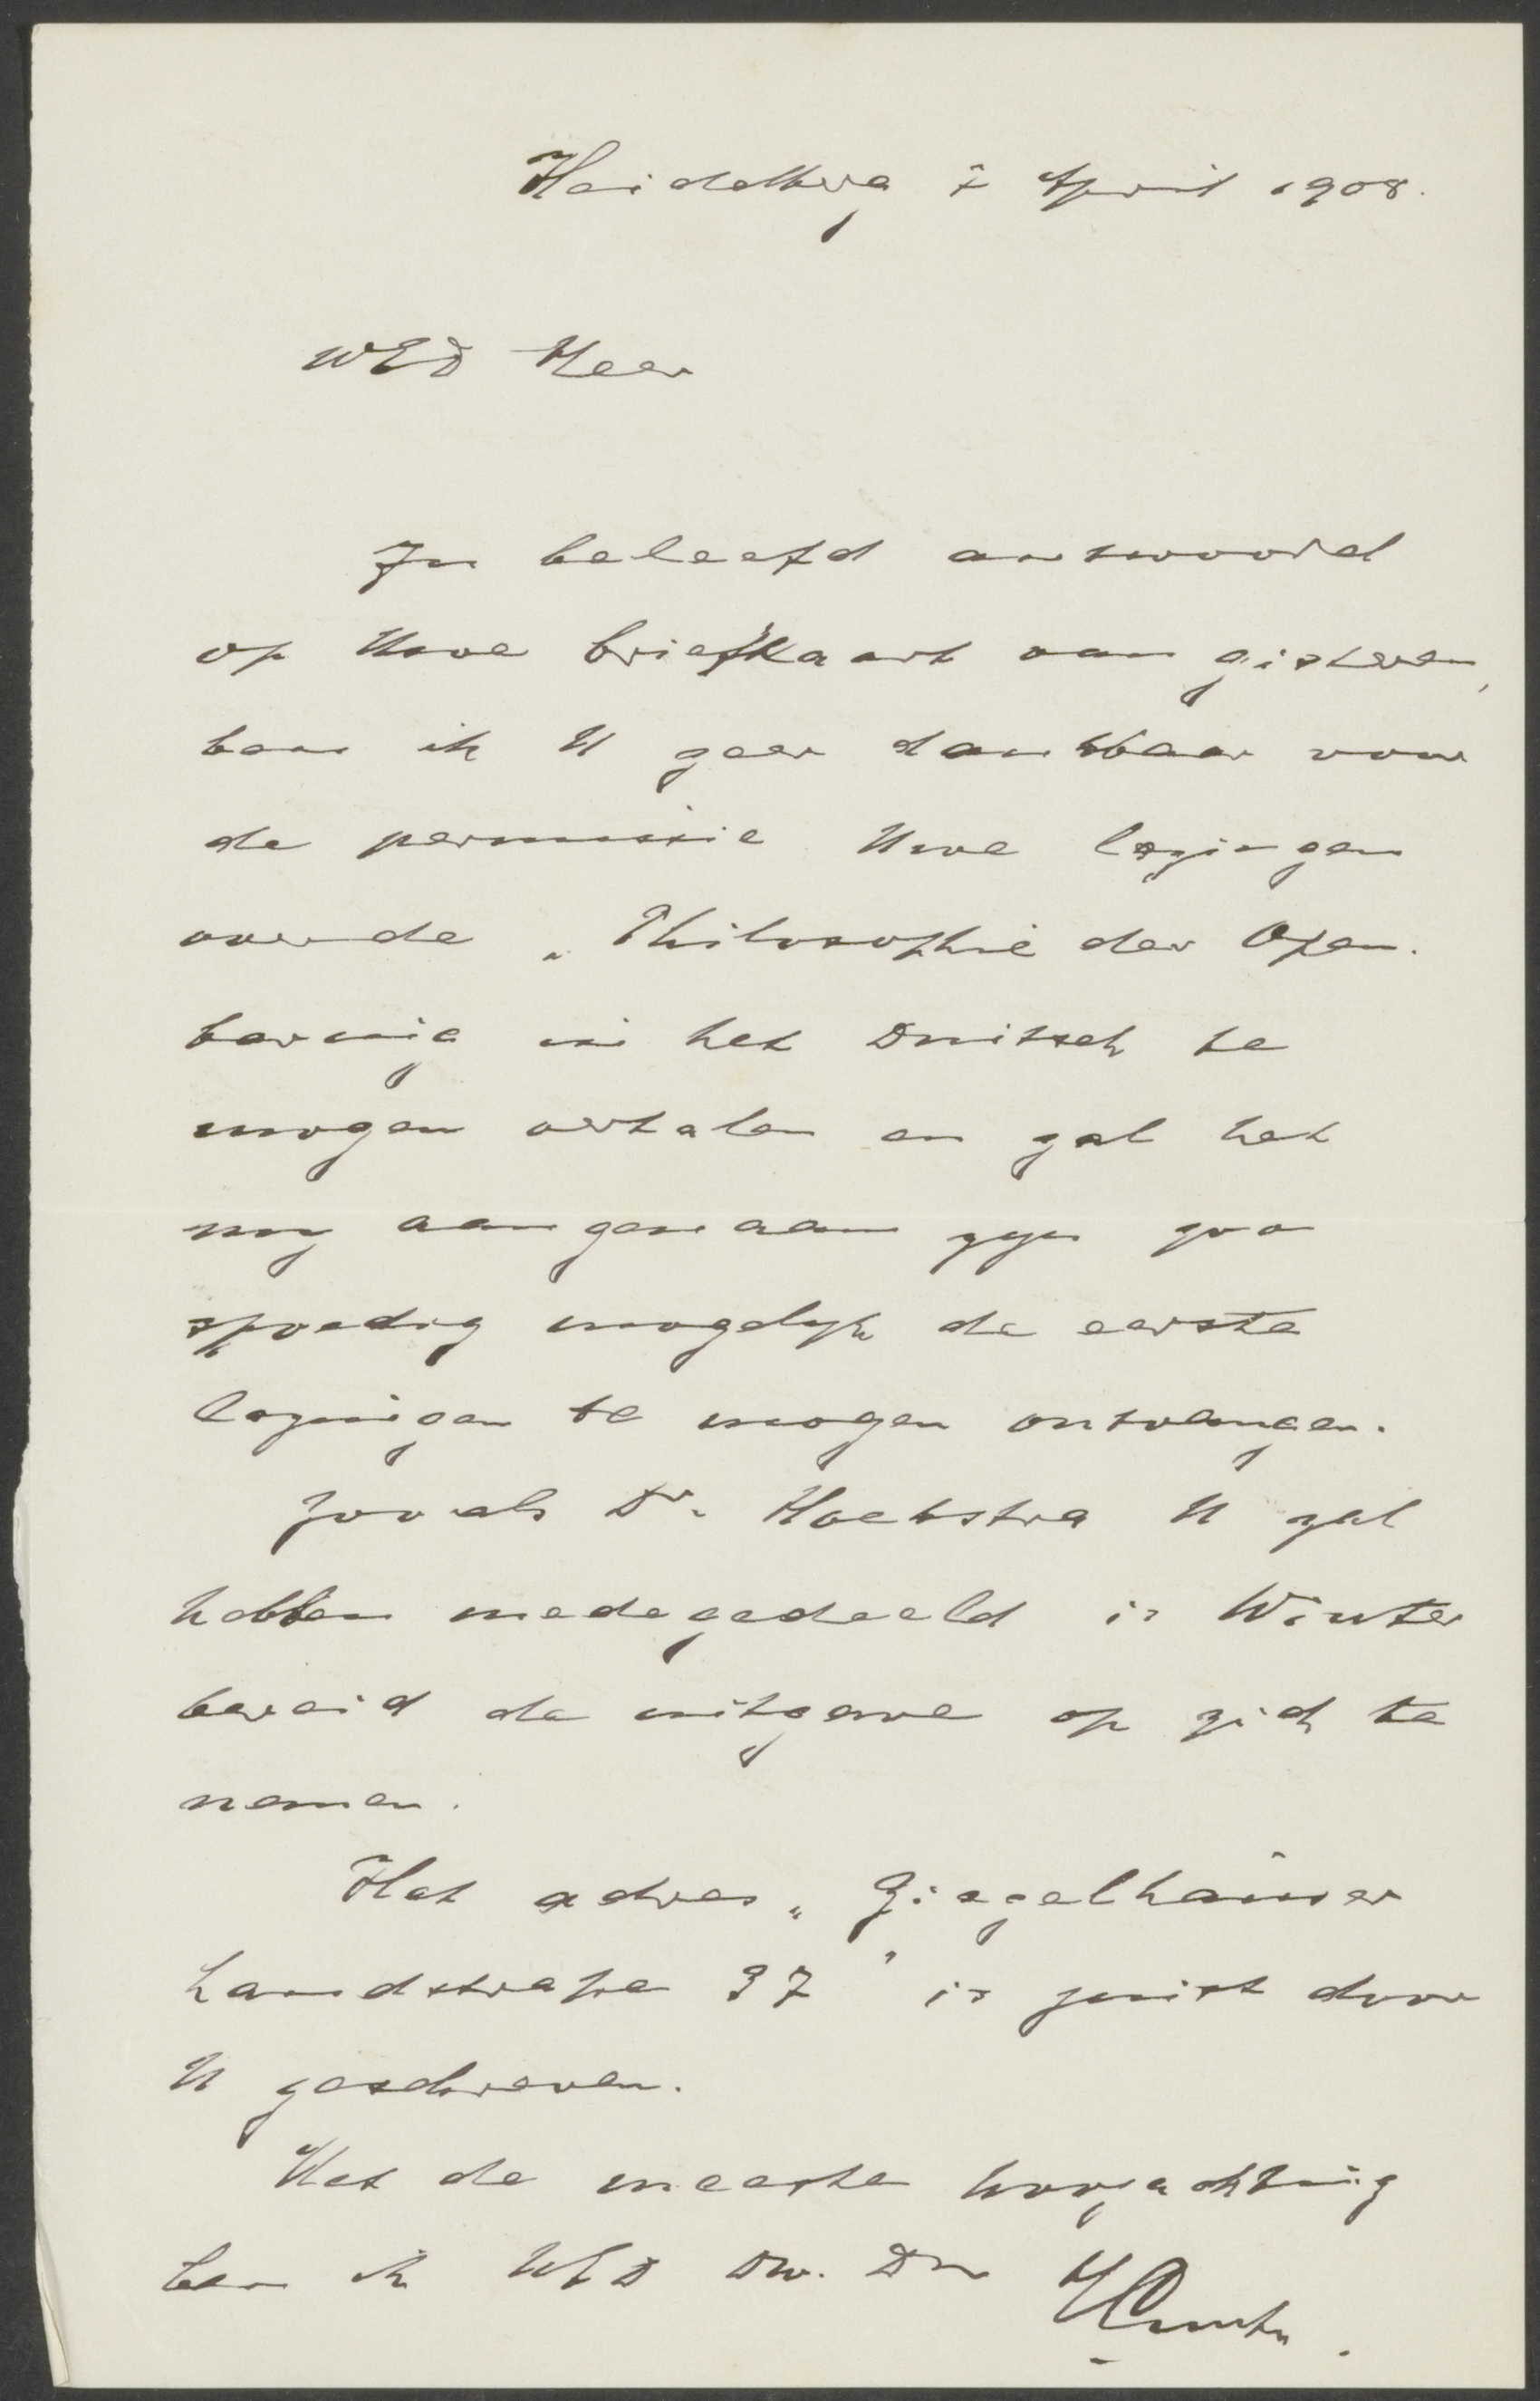 Heidelberg 7 April 1908.
WED Heer
In beleefd antwoord
op Uwe briefkaart van gisteren,
ben ik U zeer dankbaar voor
de permissie Uwe lezingen
over de „Philosophie der Open-
baring in het Duitsch te
mogen vertalen en zal het
mij aangenaam zijn zoo
spoedig mogelijk de eerste
lezingen te mogen ontvangen.
Zooals Dr. Hoekstra U zal
hebben medegedeeld is Winter
bereid de uitgave op zich te
nemen.
Het adres „Ziegelhäuser
Landstraße 37" is juist door
U geschreven.
Met de meeste hoogachting
ben ik UED Dw. Dr